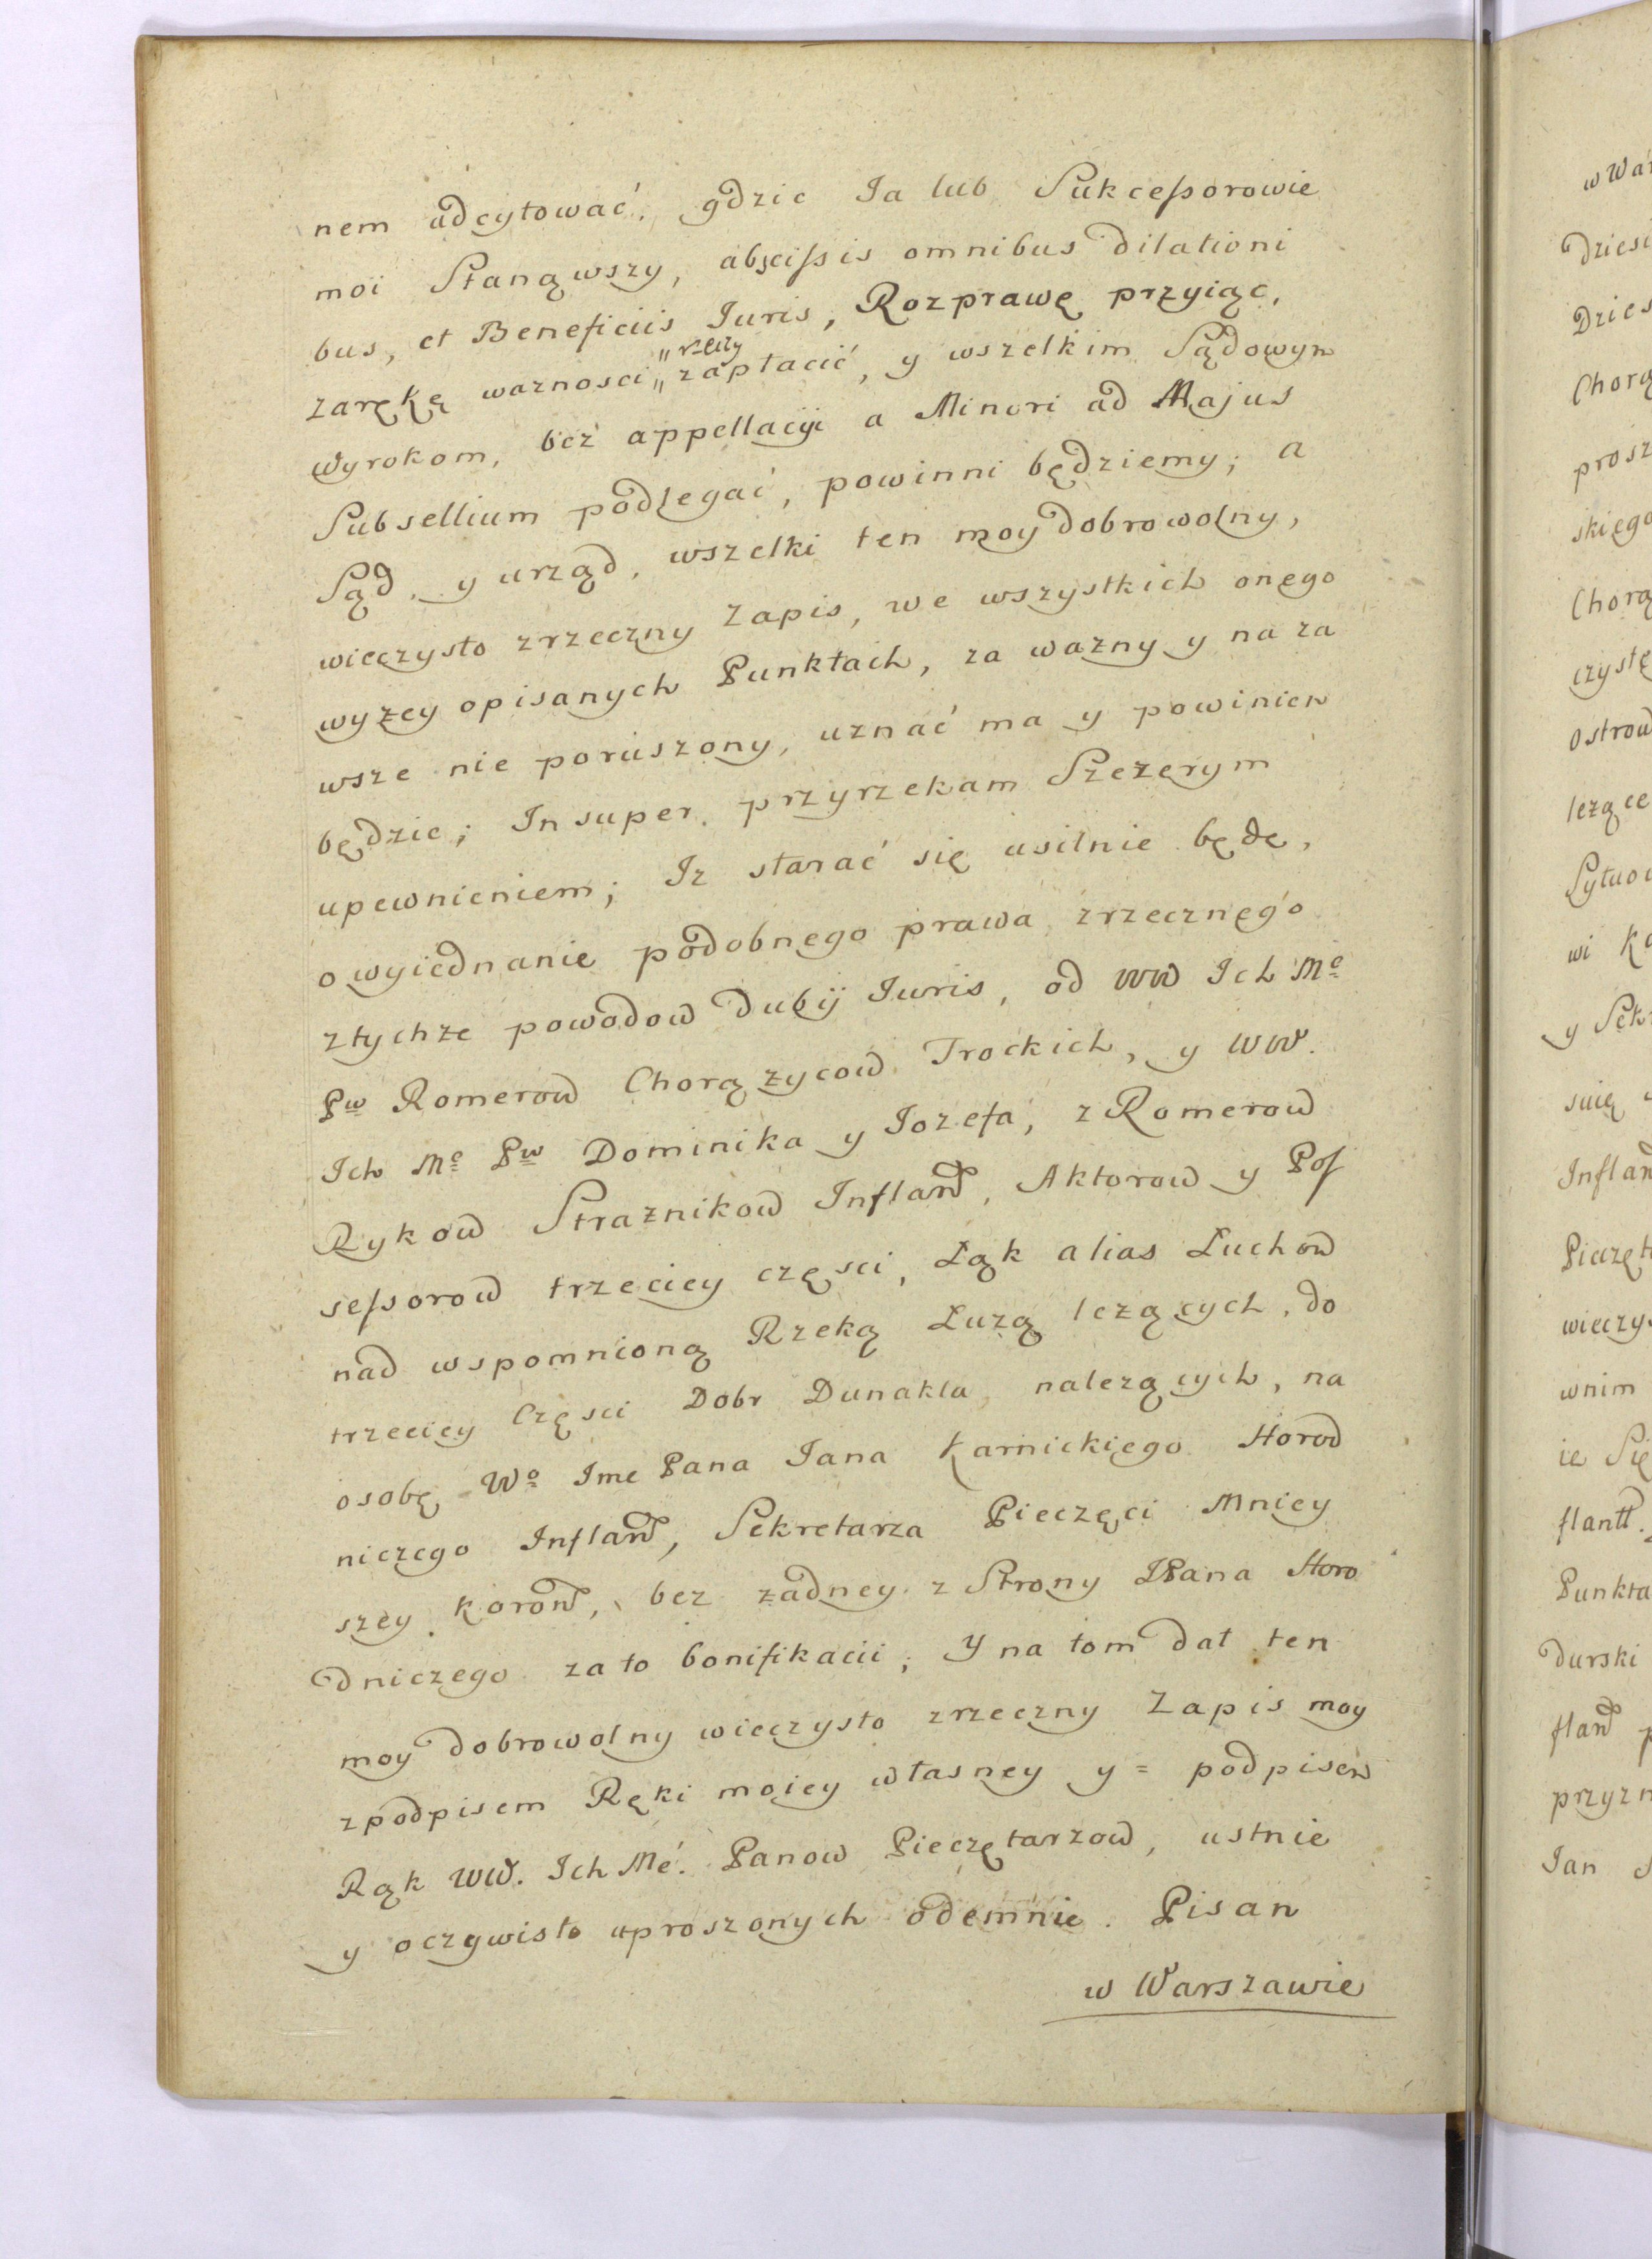 nem adcytować, gdzie Ja lub Sukceſsorowie
moi Stanąwszy, abſciſsis omnibus dilationi
bus, et Beneficiis Juris, Rozprawę przyiąc,
zarękę waznosci „rzeczy„ zapłacić, y wszelkim Sądowym
wyrokom, bez appellacyi a Minori ad Majus
Subsellium podlegać, powinni będziemy; a
Sąd, y urząd, wszelki ten moy dobrowolny,
wieczysto zrzeczny Zapis, we wszystkich onego
wyzey opisanych Punktach, za wazny y na za
wsze nie poruszony, uznać ma y powinien
będzie; Insuper, przyrzekam Szczerym
upewnieniem; Iz starać się usilnie będę,
o wyiednanie podobnego prawa zrzecznego
z tychze powodow Dubij Iuris, od WW Ich Mc
Pw Romerow Chorązycow Trockich, y WW.
Ich Mc Pw Dominika y Jozefa, z Romerow
Rykow Straznikow Infland, Aktorow y Poſ
seſsorow trzeciey częsci, Łąk alias Luchow
nad wspomnioną Rzeką Łuzą lezących, do
trzeciey Częsci Dobr Dunakla nalezących, na
osobę Wo Jmc Pana Jana Karnickiego Horod
niczego Infland, Sekretarza Pieczęci Mniey
szey Koronn, bez zadney z Strony JPana Horo
dniczego za to bonifikacii; Y na tom dał ten
moy dobrowolny wieczysto zrzeczny Zapis moy
z podpisem Ręki moiey własney y = podpisem
Rąk WW. Ich Mć. Panow Pieczętarzow, ustnie
y oczywisto uproszonych odemnie. Pisan
w Warszawie